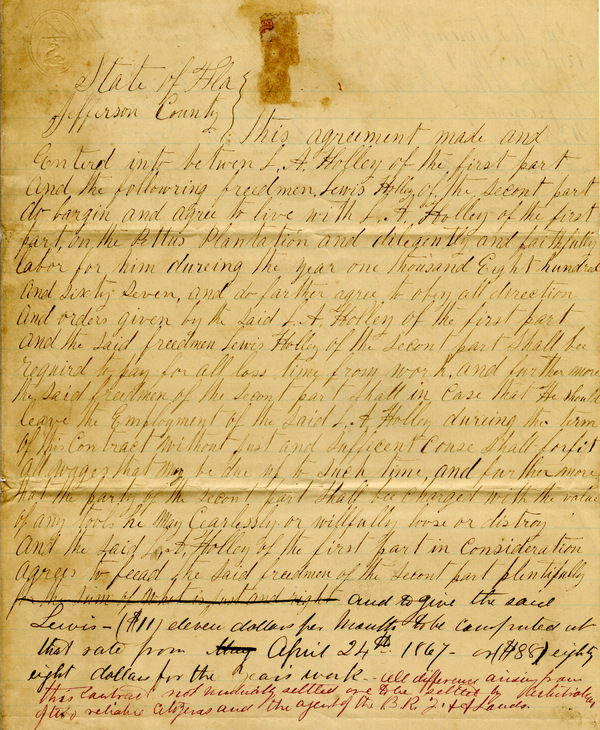 State of Fla
Jefferson County
This agreement made and
Entered into betwen L. A. Holley of the first part
And the followring freedmen Lewis Holley of the Second part
do bargin and agree to live with L. A Holley of the first
part, on the Pettus Plantation and dilegently and faithfully
labor for him dureing the year one thousand Eight hundred
And Sixty Seven, and do farther agree to obey all direction
And orders given by the Said L. A. Holley of the first part
And the Said freedmen Lewis Holley of the Second part Shall bee
required to pay for all loss time from work. and further more
the Said freedmen of the Second part Shall in Case that He Should
leave the Employment of the Said L. A Holley dureing the term
of this Contract without Just and Sufficent Couse Shall forfit
all wages that may be due up to Such time, and further more
that the party of the Second part Shall bee charget with the value
of any tools he may Cearlessly or willfully loose or distroy
And the Said L. A. Holley of the first part in Consideration
agrees to feead the Said freedmen of the Second part plentifully
for the Sum of What is just and right and to give the said
Lewis - ($11) eleven dollars per month to be computed at
that rate from May April 24th 1867 - or ($88) eighty
eight dollars for the years work - All difference arising from
this contract not mutually settled are to be settled by arbitration
of two reliable citizens and the agent of the B. R. F. & A Lands.